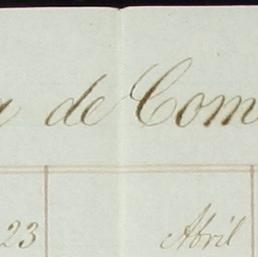 de Com
23 Abril